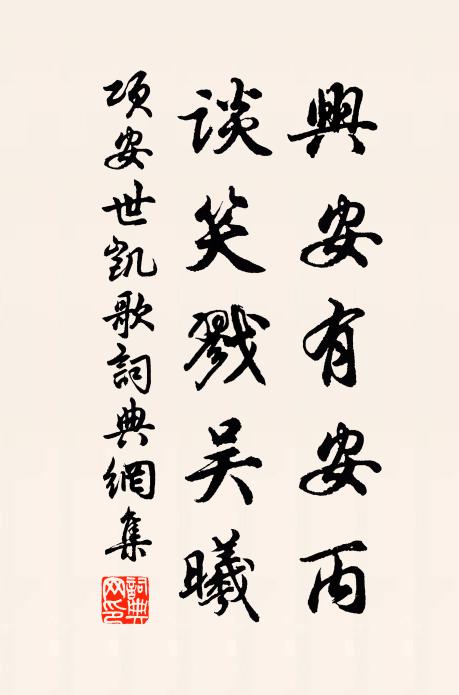 興安有安丙
談笑戮吴曦
项安世凯歌詞典網集
詞典网印